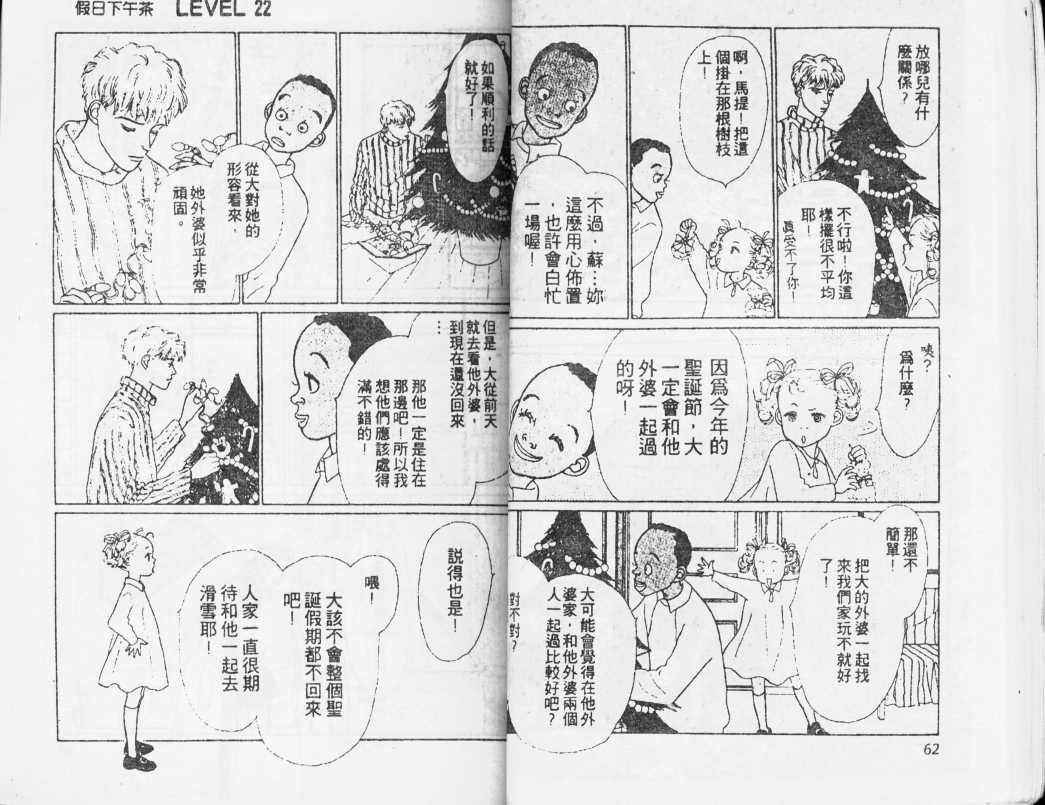 放哪兒有什
麼關係？
不行啦！你這
樣擺很不平均
耶！
真受不了你！
啊，馬提！把這
個掛在那根樹枝
上！
不過，蘇…妳
這麼用心佈置
，也許會白忙
一場喔！
咦？
爲什麼？
因爲今年的
聖誕節，大
一定會和他
外婆一起過
的呀！
那還不
簡單！
把大的外婆一起找
來我們家玩不就好
了！
大可能會覺得在他外
婆家，和他外婆兩個
人一起過比較好吧？
對不對？
62
假日下午茶 LEVEL 22
如果順利的話
就好了！
從大對她的
形容看來，
她外婆似乎非常
頑固。
但是，大從前天
就去看他外婆，
到現在還沒回來
…
那他一定是住在
那邊吧！所以我
想他們應該處得
滿不錯的！
說得也是！
喂！
大該不會整個聖
誕假期都不回來
吧！
人家一直很期
待和他一起去
滑雪耶！